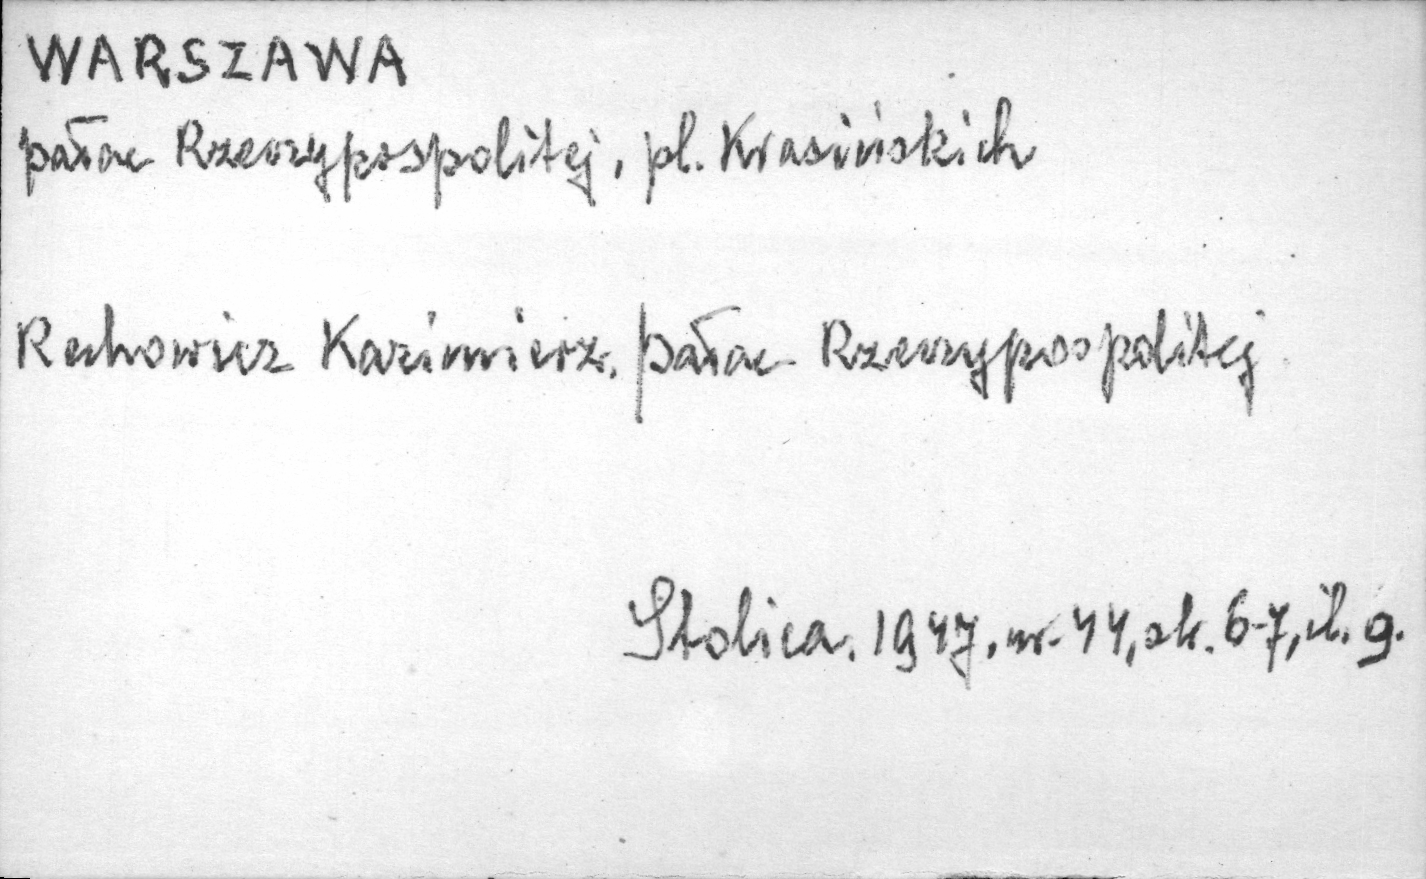 WARSZAWA
pałac Rzeczypospolitej, pl. Krasińskich
Rechowicz Kazimierz. Pałac Rzeczypospolitej
Stolica. 1947, nr. 44, sk. 6-7, il. 9.